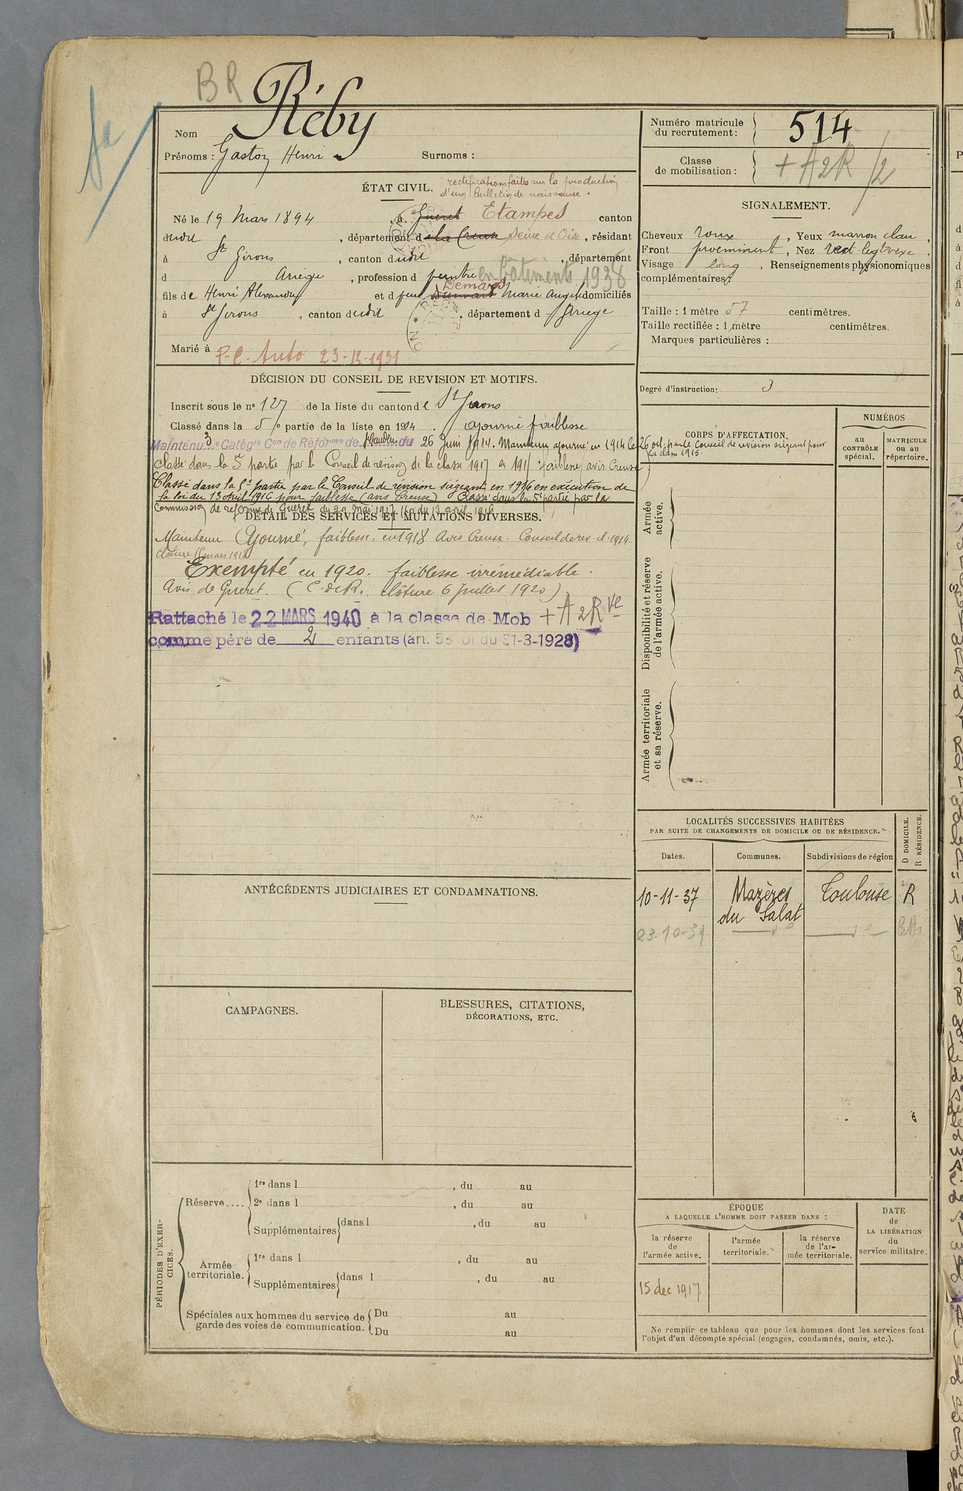 BR
Nom Réby
Prénoms : Gaston Henri Surnoms :
Numéro matricule du recrutement : 514
Classe de mobilisation : + A2R /2
ÉTAT CIVIL. rectifications faites sur la production
d'un bulletin de naissance
Né le 19 Mars 1894 , à Guéret Etampes canton
dudit , département d la Creuse Seine et Oise , résidant
à St Girons , canton dudit , département
d Ariège , profession d peintre en bâtiments 1938
fils de Henri Alexandre et d feue Demars Marie domiciliés
à St Girons , canton dudit , département d Ariège
Marié à P.C. Auto 23-12-1931
SIGNALEMENT.
Cheveux roux , Yeux marron clair ,
Front proéminent , Nez rect leg
Visage long , Renseignements physionomiques
complémentaires :
Taille : 1 mètre 57 centimètres.
Taille rectifiée : 1 mètre centimètres.
Marques particulières :
Degré d'instruction : 3
DÉCISION DU CONSEIL DE REVISION ET MOTIFS.
Inscrit sous le n° 127 de la liste du canton de St Girons
Classé dans la 5e partie de la liste en 1914 . ajourné faiblesse
Maintenu 3e Catégie Con de Réforme de du 26 Juin 1914. Maintenu ajourné en 1914 le 26 oct. par le Conseil de révision siégeant pour
la classe 1915
Classé dans la 5e partie par le Conseil de révision de la classe 1917 en 1915 faiblesse avis Creuse
Classé dans la 5e partie par le Conseil de révision siégeant en 1916 en exécution de
la loi du 13 Avril 1916 pour faiblesse (avis Creuse) Classé dans la 5e partie par la
Commission de réforme de Guéret du 29 mai 1917
DÉTAIL DES SERVICES ET MUTATIONS DIVERSES.
Maintenu Ajourné, faiblesse, en 1918 Avis Creuse. Conseil de rév. cl. 1919.
Exempté en 1920. faiblesse irrémédiable.
Avis de Guéret. (C. de R. clôture 6 juillet 1920)
Rattaché le 22 MARS 1940 à la classe de Mob + A2R
comme père de 2 enfants (art. 58 loi du 31-3-1928)
CORPS D'AFFECTATION.
NUMÉROS
au CONTRÔLE spécial.
MATRICULE ou au répertoire.
Armée active.
Disponibilité et réserve de l'armée active.
Armée territoriale et sa réserve.
LOCALITÉS SUCCESSIVES HABITÉES
PAR SUITE DE CHANGEMENTS DE DOMICILE OU DE RÉSIDENCE.
D DOMICILE. R RÉSIDENCE.
Dates. Communes. Subdivisions de région
10-11-37 Mazères du Salat Toulouse R
23-10-39
ANTÉCÉDENTS JUDICIAIRES ET CONDAMNATIONS.
CAMPAGNES.
BLESSURES, CITATIONS,
DÉCORATIONS, ETC.
PÉRIODES D'EXERCICES.
Réserve....
1re dans l , du au
2e dans l , du au
Supplémentaires dans l , du au
Armée territoriale.
1re dans l , du au
Supplémentaires dans l , du au
Spéciales aux hommes du service de garde des voies de communication.
Du au
Du au
ÉPOQUE
A LAQUELLE L'HOMME DOIT PASSER DANS :
la réserve de l'armée active.
l'armée territoriale.
la réserve de l'armée territoriale.
DATE de LA LIBÉRATION du service militaire.
15 dec 1917
Ne remplir ce tableau que pour les hommes dont les services font
l'objet d'un décompte spécial (engagés, condamnés, omis, etc.).